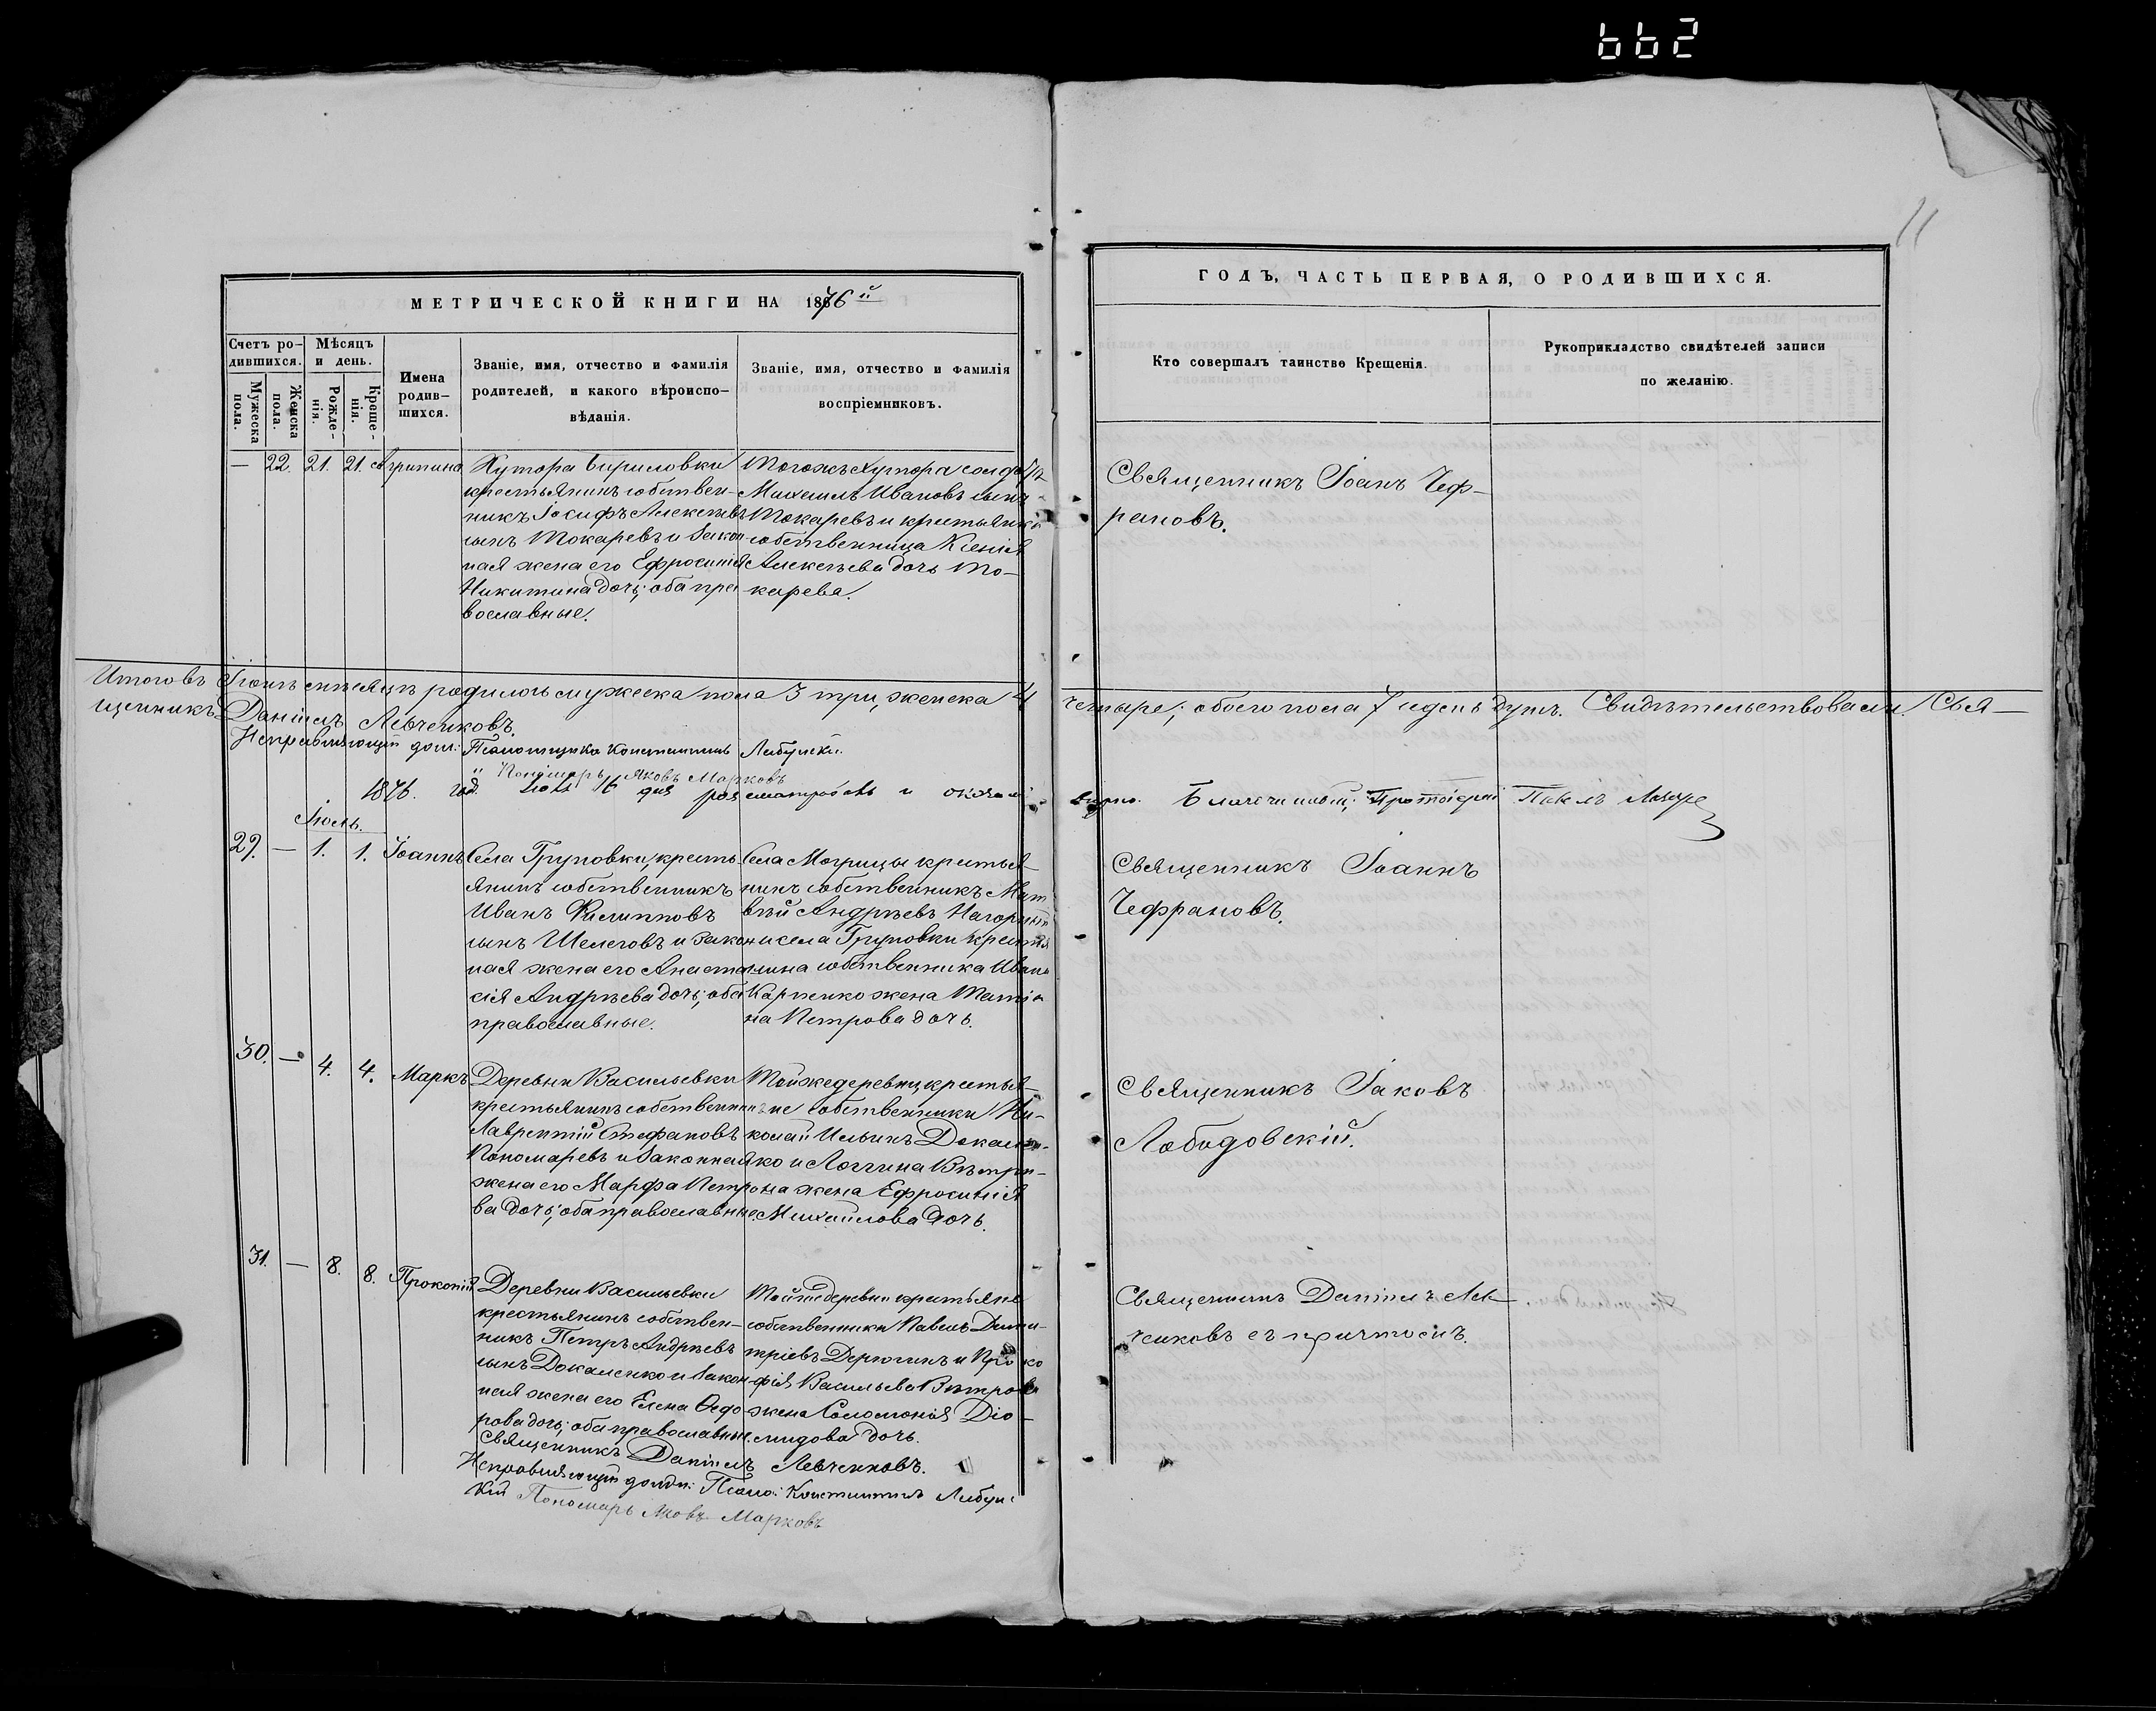 662
11
МЕТРИЧЕСКОЙ КНИГИ НА 1876й
ГОДЪ, ЧАСТЬ ПЕРВАЯ, О РОДИВШИХСЯ.
Счетъ ро-
дившихся.
Мужеска
пола.
Женска
пола.
Мѣсяцъ
и день.
Рожде-
нія.
Креще-
нія.
Имена
родив-
шихся.
Званіе, имя, отчество и фамилія
родителей, и какого вѣроиспо-
вѣданія.
Званіе, имя, отчество и фамилія
воспріемниковъ.
Кто совершалъ таинство Крещенія.
Рукоприкладство свидѣтелей записи
по желанію.
— 22. 21. 21. Агрипина
Хутора Кириловки
крестьянинъ собствен-
никъ Іосифъ Алексѣевъ
сынъ Токаревъ и закон
ная жена его Ефросинія
Никитина дочь; оба пра
вославные.
Тогожъ хутора солдатъ
Михаилъ Ивановъ сынъ
Токаревъ и крестьянка
собственница Ксенія
Алексѣева дочь То-
карева.
Священникъ Іоанъ Чеф-
рановъ.
Итого въ Іюнѣ мѣсяцѣ родилось мужеска пола 3 три, женска 4
четыре; обоего пола 7 седмь душъ. Свидѣтельствовали: Свя-
щенникъ Даніилъ Левченковъ.
Исправляющій долж: Псаломщика Константинъ
Пономарь Яковъ Марковъ
1876. года 16 дня
вѣрно. Благочинный, Протоіерей Павелъ
Іюль.
29. — 1. 1. Іоаннъ
Села Груповки, кресть
янинъ собственникъ
Иванъ Филипповъ
сынъ Шелеговъ и закон
ная жена его Анаста
сія Андрѣева дочь; оба
православные.
Села Могрицы крестья-
нинъ собственникъ Мат
вѣй Андрѣевъ Нагорный
и села Груповки крестья
нина собственника Ивана
Карпенко жена Татія
на Петрова дочь.
Священникъ Іоаннъ
Чефрановъ.
30. — 4. 4. Маркъ
Деревни Васильевки
крестьянинъ собственникъ
Лаврентій Стефановъ
Пономаревъ и законная
жена его Марфа Петро
ва дочь; оба православные.
Той же деревни, крестья-
не собственники Ни-
колай Ильинъ Докален-
ко и Логгина Вѣтри-
на жена Ефросинія
Михаилова дочь.
Священникъ Іаковъ
Лободовскій.
31. — 8. 8. Прокопій
Деревни Васильевки
крестьянинъ собствен-
никъ Петръ Андрѣевъ
сынъ Докаленко и закон
ная жена его Елена Ѳедо
рова дочь; оба православные.
Той же деревни крестьяне
собственники Павелъ Дими-
тріевъ Дерюгинъ и Проко
фія Васильева Вѣтрова
жена Соломонія Діо-
мидова дочь.
Священникъ Даніилъ Лев-
ченковъ съ причтомъ.
Священникъ Даніилъ Левченковъ.
Исправляющій должн: Псало: Константинъ
кій Пономарь Яковъ Марковъ